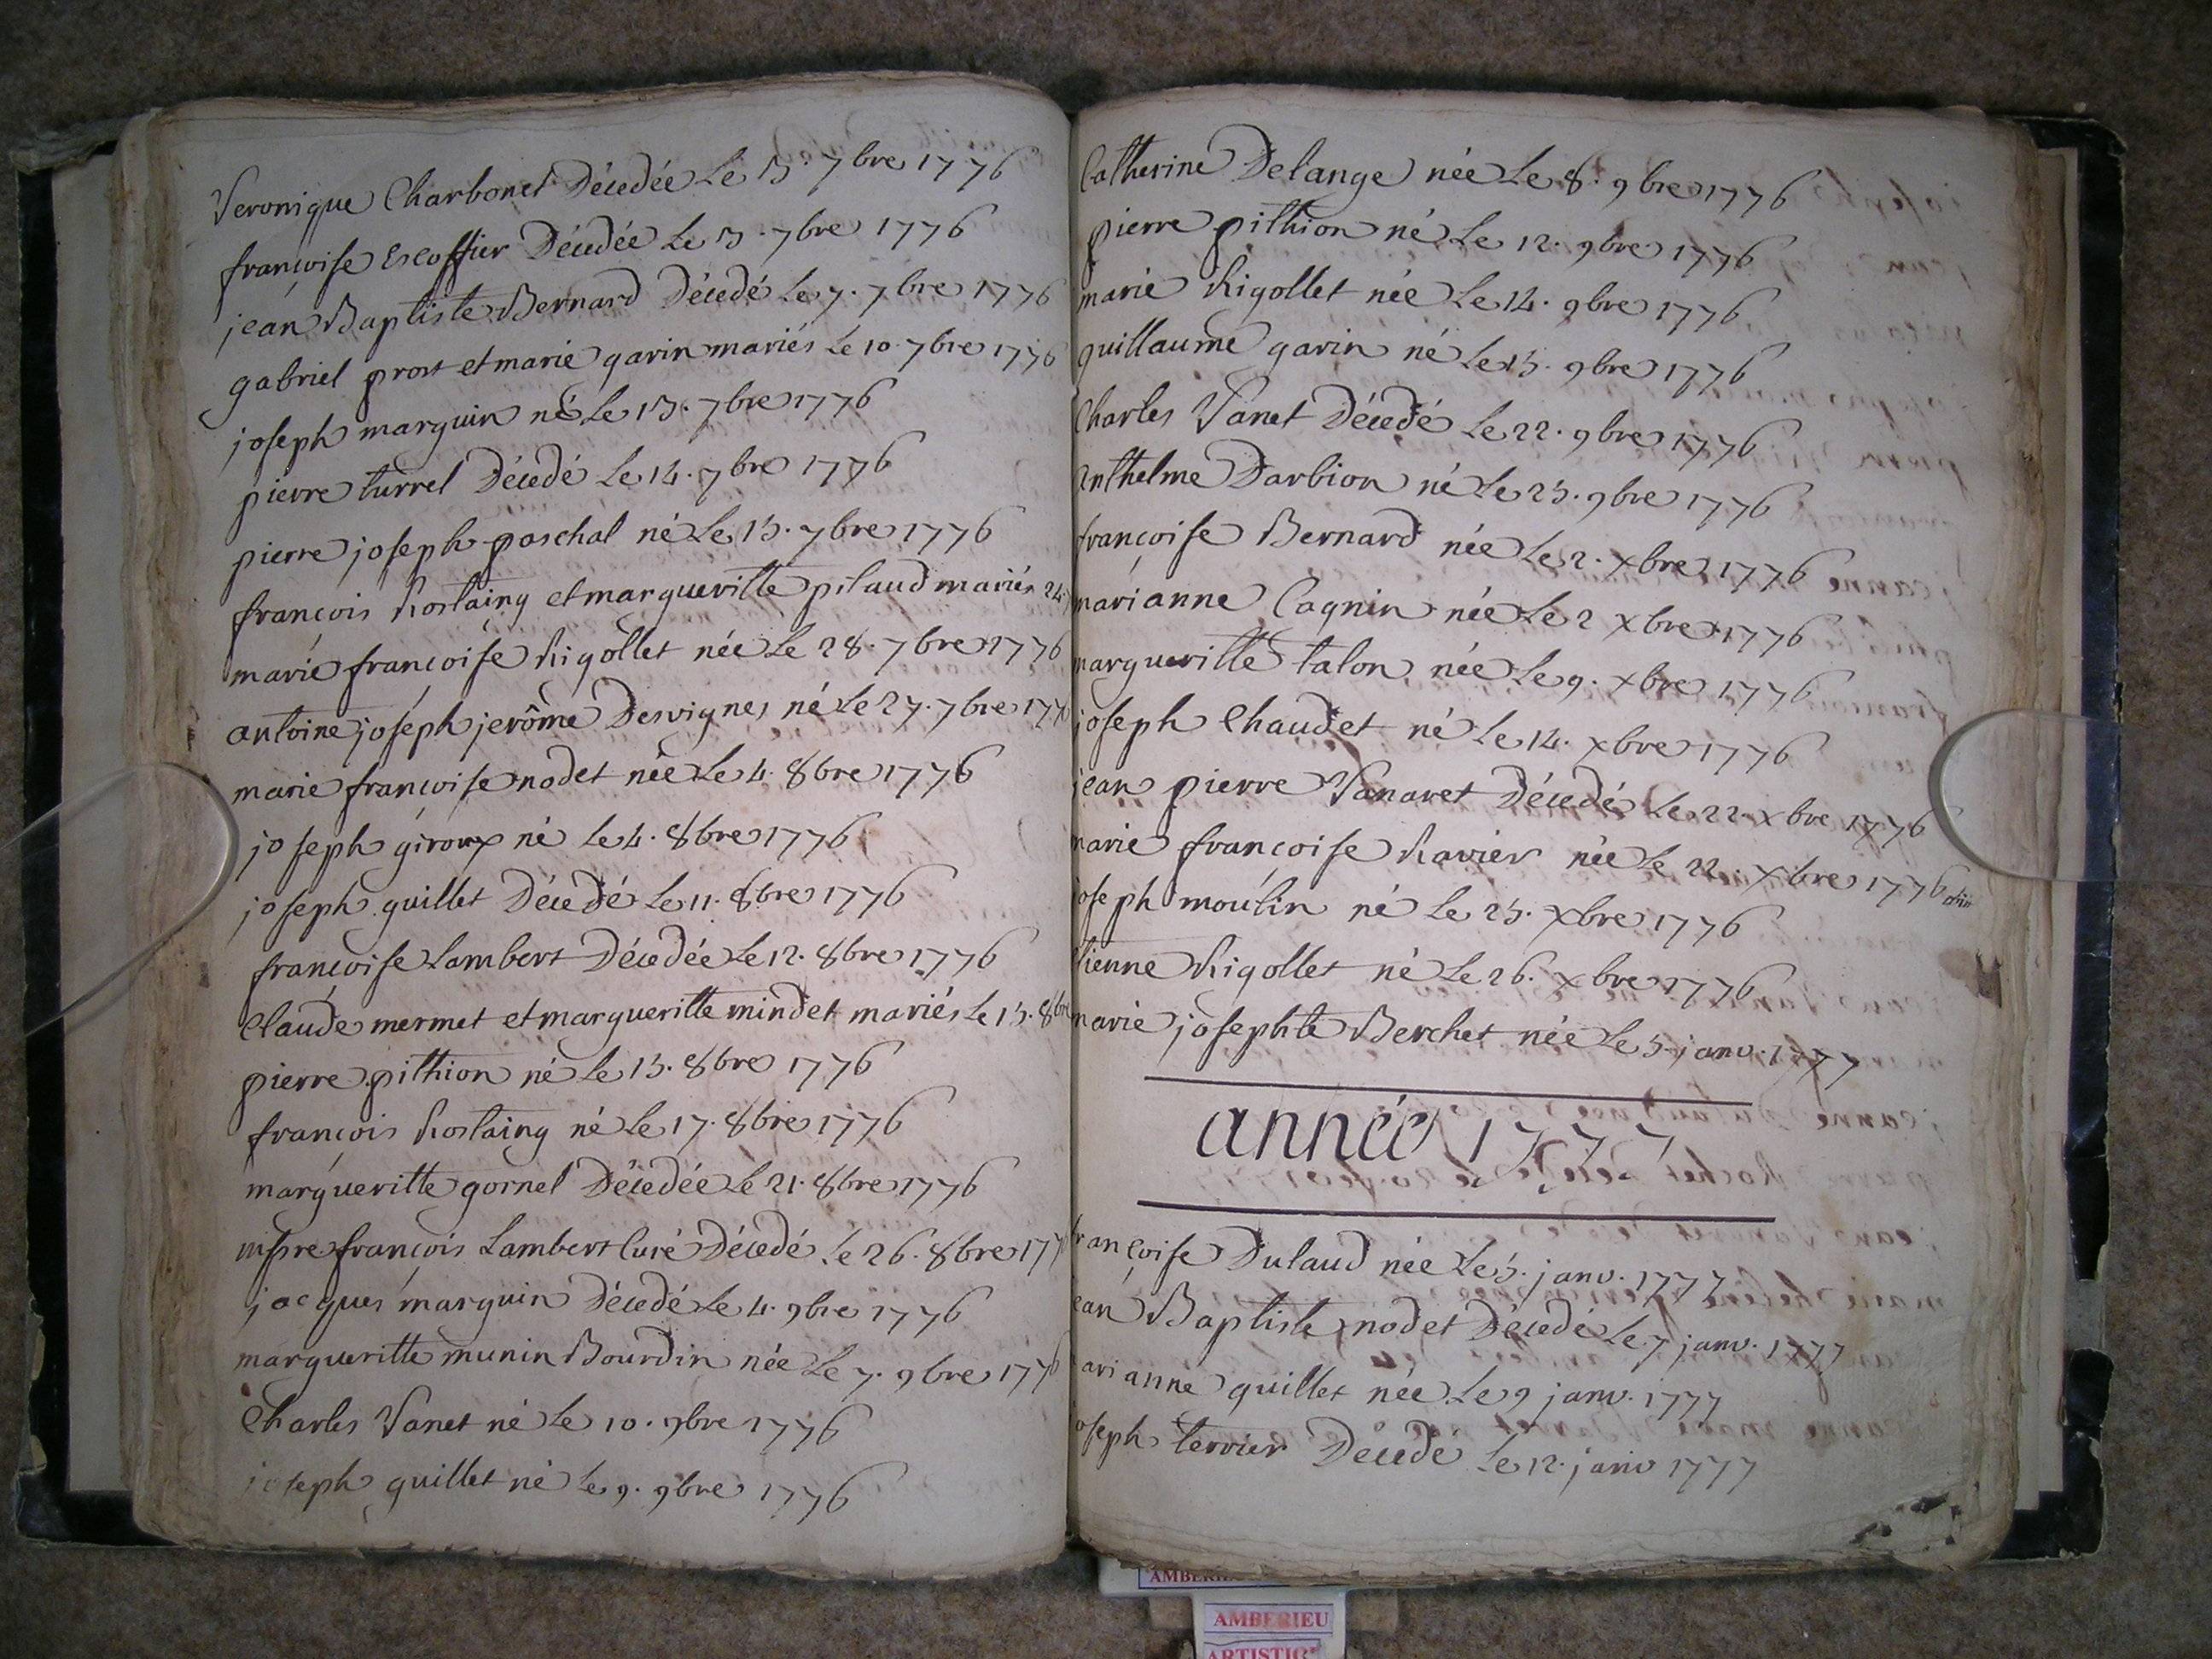 Veronique Charbonet Décedée Le 5. 7bre 1776
françoise Escoffier Décedée Le 5. 7bre 1776
jean Baptiste Bernard Décedé Le 7. 7bre 1776
gabriel prost et marie garin mariés Le 10. 7bre 1776
joseph marguin né Le 13. 7bre 1776
pierre turrel Décedé Le 14. 7bre 1776
pierre joseph paschal né Le 15. 7bre 1776
françois Rostaing et margueritte pilaud mariés 24.
marie françoise Rigollet née Le 28. 7bre 1776
antoine joseph jerôme Desvignes né Le 27. 7bre 177
marie françoise nodet née Le 4. 8bre 1776
joseph giroux né Le 4. 8bre 1776
joseph guillet Décedé Le 11. 8bre 1776
françoise Lambert Décedée Le 12. 8bre 1776
Claude mermet et margueritte mindet mariés Le 15. 8bre
pierre pithion né Le 15. 8bre 1776
françois Rostaing né Le 17. 8bre 1776
margueritte gornel Décedée Le 21. 8bre 1776
françois Lambert Curé Décedé Le 26. 8bre 177
jacques marguin Décedé Le 4. 9bre 1776
margueritte munin Bourdin née Le 7. 9bre 1776
Charles Vanet né Le 10. 9bre 1776
joseph guillet né Le 9. 9bre 1776
Catherine Delange née Le 8. 9bre 1776
pierre pithion né Le 12. 9bre 1776
marie Rigollet née Le 14. 9bre 1776
guillaume garin né Le 15. 9bre 1776
Charles Vanet Décedé Le 22. 9bre 1776
anthelme Darbion né Le 25. 9bre 1776
françoise Bernard née Le 2. xbre 1776
marianne Cagnin née Le 2 xbre 1776
margueritte talon née Le 9. xbre 1776
joseph Chaudet né Le 14. xbre 1776
jean pierre Vanaret Décedé Le 22 xbre 1776
marie françoise Ravier née Le 22. xbre 1776
joseph moulin né Le 25. xbre 1776
tienne Rigollet né Le 26. xbre 1776
marie josephte Berchet née Le 5 janv. 1777
année 1777
françoise Dulaud née Le 5. janv. 1777
jean Baptiste nodet Décedé Le 7 janv. 1777
arianne guillet née Le 9 janv. 1777
joseph tervier Decede Le 12. janv 1777
AMBERIEU
AMBERIEU
ARTISTIC